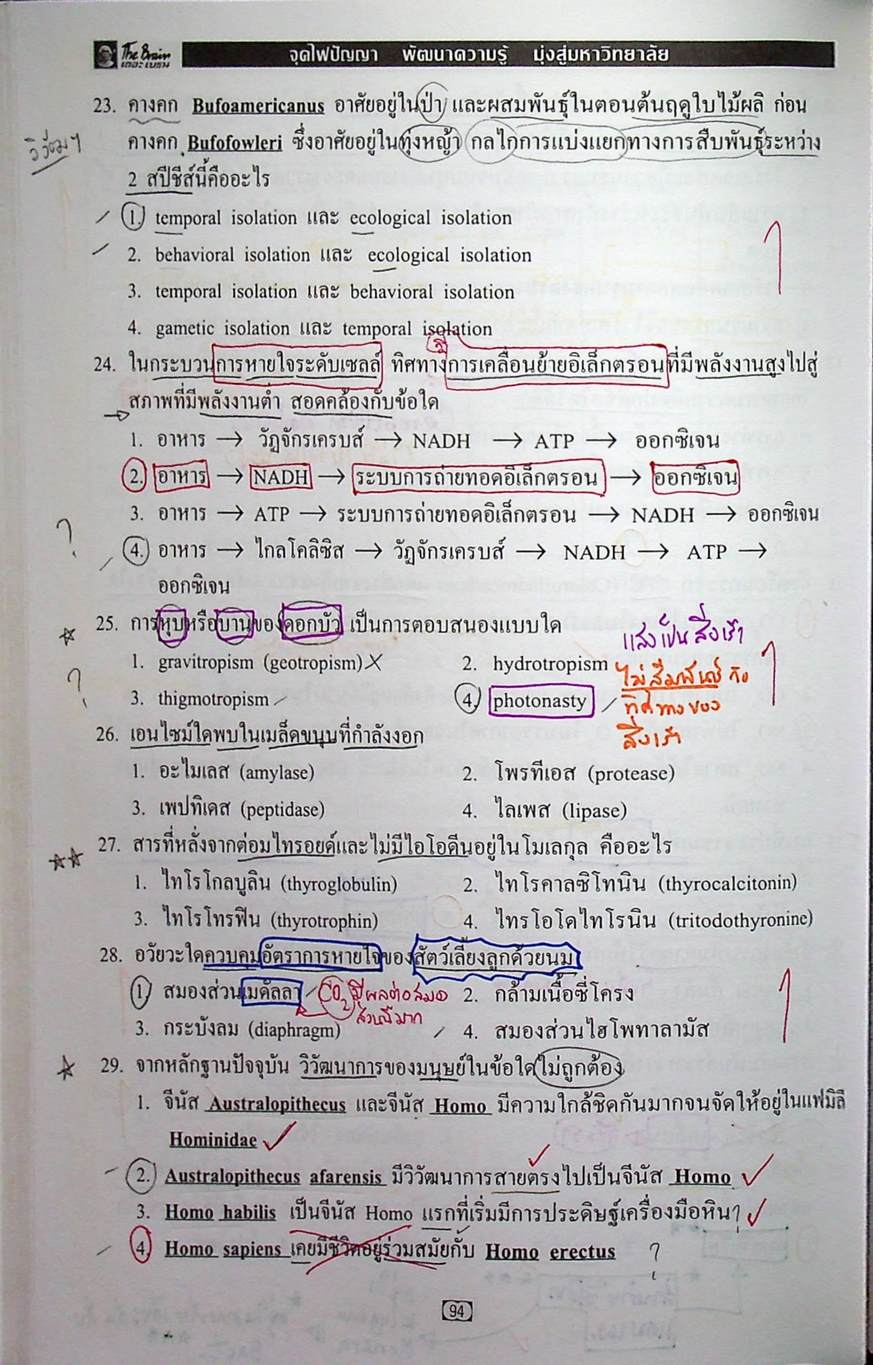 The Brain เดอะเบรน จุดไฟปัญญา พัฒนาความรู้ มุ่งสู่มหาวิทยาลัย
23. คางคก Bufoamericanus อาศัยอยู่ในป่า และผสมพันธุ์ในตอนต้นฤดูใบไม้ผลิ ก่อน
คางคก Bufofowleri ซึ่งอาศัยอยู่ในทุ่งหญ้า กลไกการแบ่งแยกทางการสืบพันธุ์ระหว่าง
2 สปีชีส์นี้คืออะไร
1. temporal isolation และ ecological isolation
2. behavioral isolation และ ecological isolation
3. temporal isolation และ behavioral isolation
4. gametic isolation และ temporal isolation
24. ในกระบวนการหายใจระดับเซลล์ ทิศทางการเคลื่อนย้ายอิเล็กตรอนที่มีพลังงานสูงไปสู่
สภาพที่มีพลังงานต่ำ สอดคล้องกับข้อใด
1. อาหาร → วัฏจักรเครบส์ → NADH → ATP → ออกซิเจน
2. อาหาร → NADH → ระบบการถ่ายทอดอิเล็กตรอน → ออกซิเจน
3. อาหาร → ATP → ระบบการถ่ายทอดอิเล็กตรอน → NADH → ออกซิเจน
?
4. อาหาร → ไกลโคลิซิส → วัฏจักรเครบส์ → NADH → ATP →
ออกซิเจน
25. การหุบหรือบานของดอกบัว เป็นการตอบสนองแบบใด
แสงเป็นสิ่งเร้า
1. gravitropism (geotropism) 2. hydrotropism
ไม่สัมพันธ์กับ
? 3. thigmotropism 4. photonasty
ทิศทางของ
สิ่งเร้า
26. เอนไซม์ใดพบในเมล็ดขนุนที่กำลังงอก
1. อะไมเลส (amylase) 2. โพรทีเอส (protease)
3. เพปทิเดส (peptidase) 4. ไลเพส (lipase)
27. สารที่หลั่งจากต่อมไทรอยด์และไม่มีไอโอดีนอยู่ในโมเลกุล คืออะไร
1. ไทโรโกลบูลิน (thyroglobulin) 2. ไทโรคาลซิโทนิน (thyrocalcitonin)
3. ไทโรโทรฟิน (thyrotrophin) 4. ไทรโอโดไทโรนิน (tritodothyronine)
28. อวัยวะใดควบคุมอัตราการหายใจของสัตว์เลี้ยงลูกด้วยนม
1. สมองส่วนเมดัลลา CO₂ มีผลต่อสมอง 2. กล้ามเนื้อซี่โครง
ส่วนนี้มาก
3. กระบังลม (diaphragm) 4. สมองส่วนไฮโพทาลามัส
29. จากหลักฐานปัจจุบัน วิวัฒนาการของมนุษย์ในข้อใดไม่ถูกต้อง
1. จีนัส Australopithecus และจีนัส Homo มีความใกล้ชิดกันมากจนจัดให้อยู่ในแฟมิลี
Hominidae
2. Australopithecus afarensis มีวิวัฒนาการสายตรงไปเป็นจีนัส Homo
3. Homo habilis เป็นจีนัส Homo แรกที่เริ่มมีการประดิษฐ์เครื่องมือหิน
4. Homo sapiens เคยมีชีวิตอยู่ร่วมสมัยกับ Homo erectus ?
94